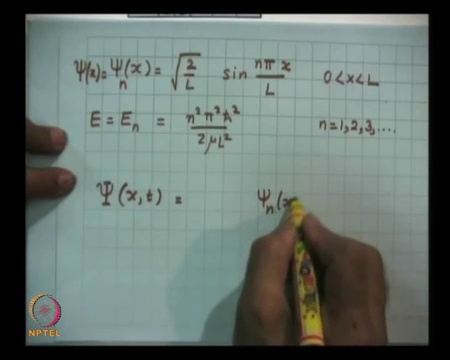 ψ(x) = ψₙ(x) = √(2/L) sin nπx/L 0 < x < L
E = Eₙ = n²π²ħ²/2μL² n = 1, 2, 3, ....
Ψ(x, t) = ψₙ(x
NPTEL